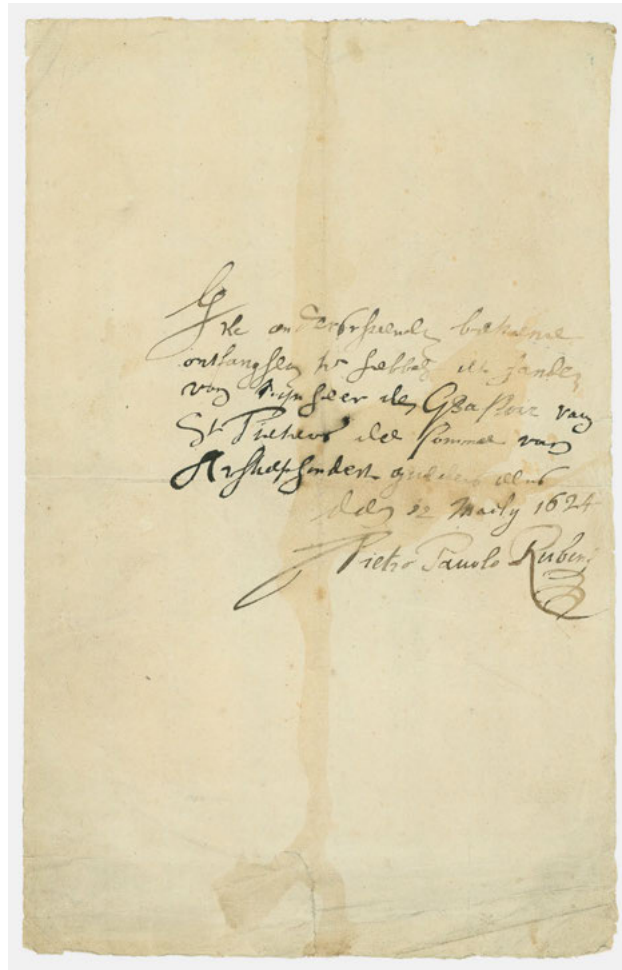 Ick onderschreven bekenne
ontfanghen te hebben uit handen
van Mijn heer den van
St Pieters de somme van
hondert guldens desen
den 12 1624
Pietro Pauolo Rubens